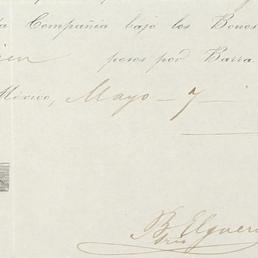 Compañia bajo los Bonos
pesos por Barra.
México, Mayo - 7 -
B. Elguero